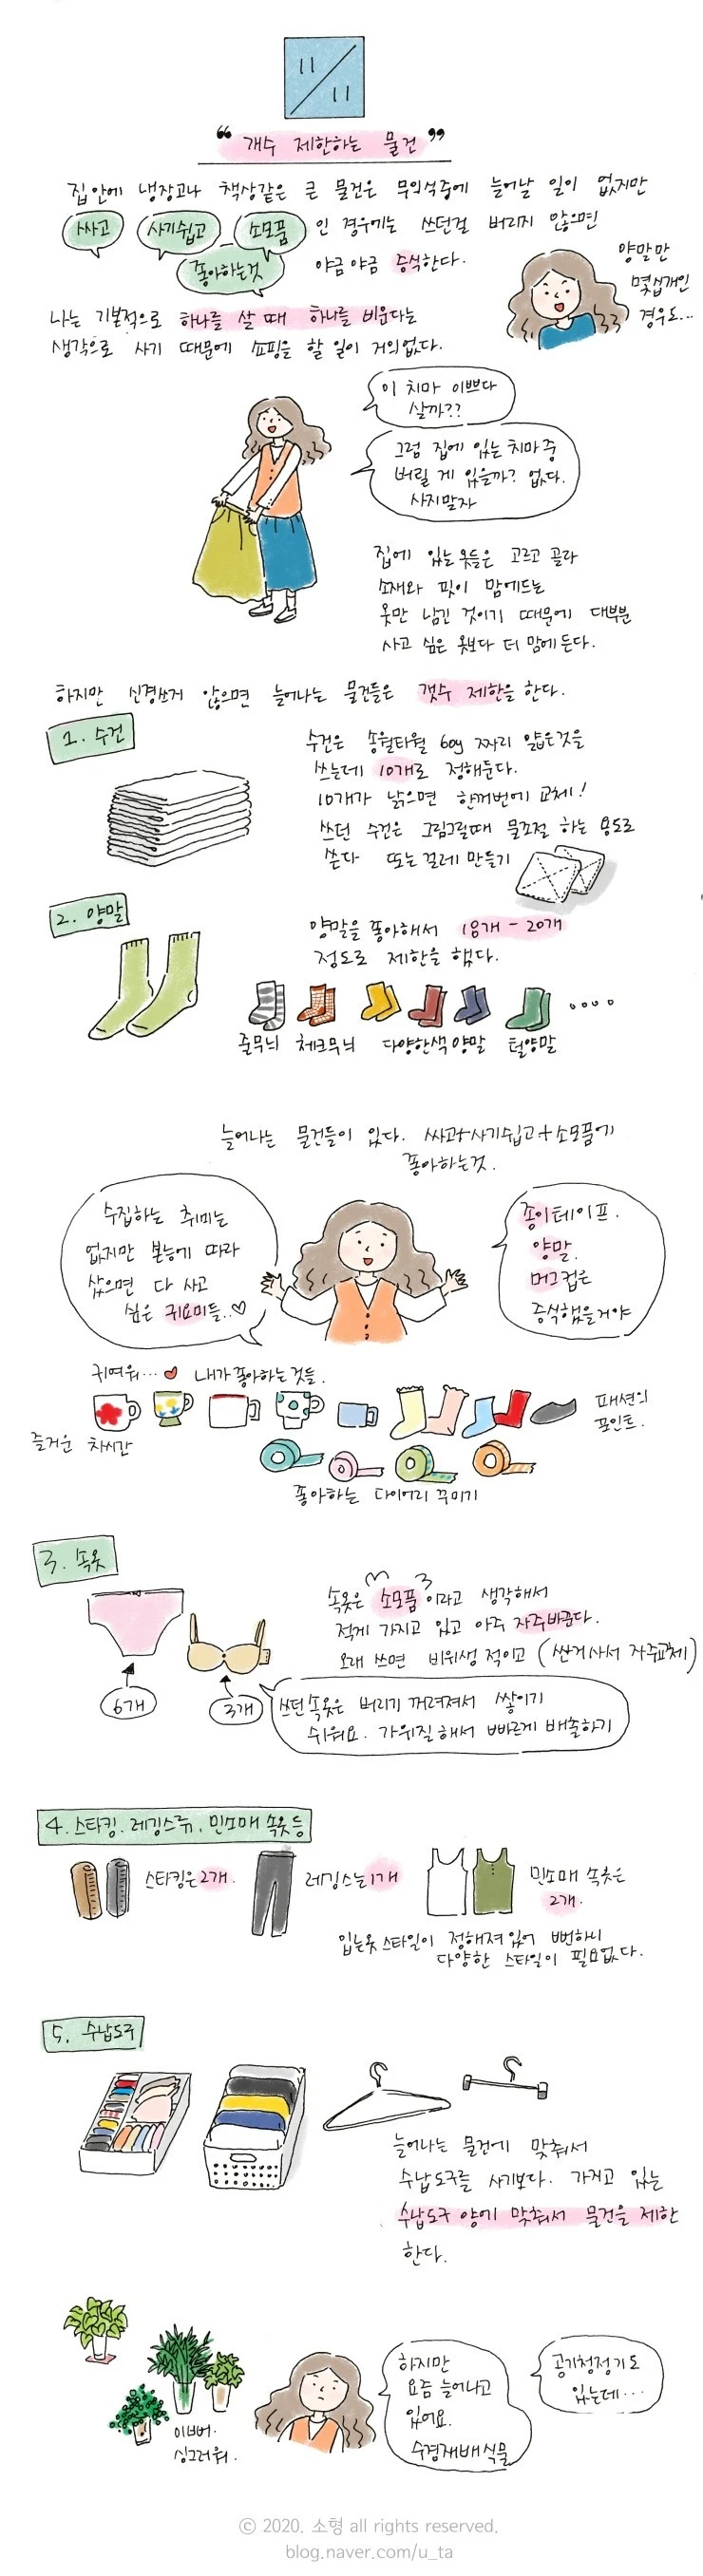 11/11
“개수 제한하는 물건”
집안에 냉장고나 책상같은 큰 물건은 무의식중에 늘어날 일이 없지만
싸고 사기쉽고 소모품 인 경우에는 쓰던걸 버리지 않으면
좋아하는것 야금야금 증식한다.
양말만
몇십개인
경우도...
나는 기본적으로 하나를 살 때 하나를 비운다는
생각으로 사기 때문에 쇼핑을 할 일이 거의없다.
이 치마 이쁘다
살까??
그럼 집에 있는 치마중
버릴 게 있을까? 없다.
사지말자
집에 있는 옷들은 고르고 골라
소재와 핏이 맘에드는
옷만 남긴 것이기 때문에 대부분
사고 싶은 옷보다 더 맘에 든다.
하지만 신경쓰지 않으면 늘어나는 물건들은 갯수 제한을 한다.
1. 수건
수건은 송월타월 60g 짜리 얇은것을
쓰는데 10개로 정해둔다.
10개가 낡으면 한꺼번에 교체!
쓰던 수건은 그림그릴때 물조절 하는 용도로
쓴다 또는 걸레 만들기
2. 양말
양말을 좋아해서 18개 - 20개
정도로 제한을 했다.
줄무늬 체크무늬 다양한색 양말 털양말
늘어나는 물건들이 있다. 싸고+사기쉽고+소모품에
좋아하는것.
수집하는 취미는
없지만 본능에 따라
샀으면 다 사고
싶은 귀요미들..♡
종이테이프.
양말.
머그컵은
증식했을거야
귀여워... ♥ 내가 좋아하는 것들.
즐거운 차시간
패션의
포인트.
좋아하는 다이어리 꾸미기
3. 속옷
속옷은 소모품 이라고 생각해서
적게 가지고 있고 아주 자주바꾼다.
오래 쓰면 비위생 적이고 (싼거사서 자주교체)
6개
3개
쓰던 속옷은 버리기 꺼려져서 쌓이기
쉬워요. 가위질 해서 빠르게 배출하기
4. 스타킹. 레깅스류. 민소매 속옷 등
스타킹은 2개.
레깅스는 1개
민소매 속옷은
2개.
입는옷 스타일이 정해져 있어 뻔하니
다양한 스타일이 필요없다.
5. 수납도구
늘어나는 물건에 맞춰서
수납도구를 사기보다. 가지고 있는
수납도구 양에 맞춰서 물건을 제한
한다.
이뻐.
싱그러워.
하지만
요즘 늘어나고
있어요.
수경재배식물
공기청정기도
있는데...
© 2020. 소형 all rights reserved.
blog.naver.com/u_ta